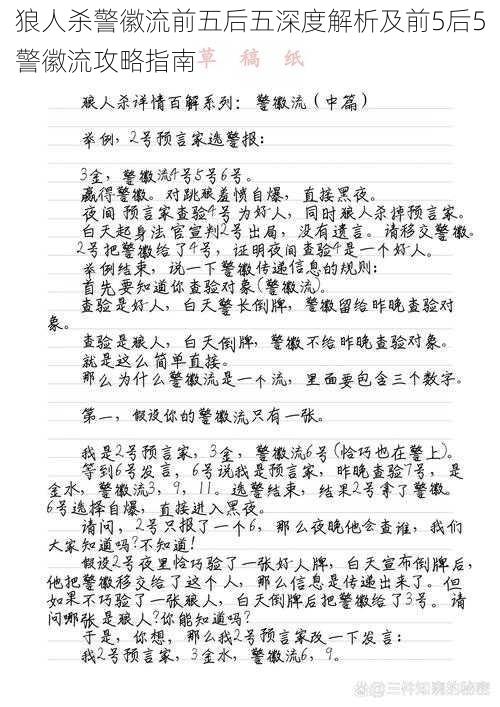 狼人杀警徽流前五后五深度解析及前5后5
警徽流攻略指南
草 稿 纸
狼人杀详情百解系列：警徽流（中篇）
举例，2号预言家选警报：
3金，警徽流4号5号6号。
赢得警徽。对跳狼羞愤自爆，直接黑夜。
夜间 预言家查验4号为好人，同时狼人杀掉预言家。
白天起身法官宣判2号出局，没有遗言。请移交警徽。
2号把警徽给了4号，证明夜间查验4是一个好人。
举例结束，说一下警徽传递信息的规则：
首先要知道你查验对象(警徽流)。
查验是好人，白天警长倒牌，警徽留给昨晚查验对
象。
查验是狼人，白天倒牌，警徽不给昨晚查验对象。
就是这么简单直接。
那么为什么警徽流是一个流，里面要包含三个数字。
第一，假设你的警徽流只有一张。
我是2号预言家，3金，警徽流6号(恰巧也在警上)。
等到6号发言，6号说我是预言家，昨晚查验7号，是
金水，警徽流3，9，11。选警结束，结果2号拿了警徽。
6号选择自爆，直接进入黑夜。
请问，2号只报了一个6，那么夜晚他会查谁，我们
大家知道吗?不知道!
假设2号夜里恰巧验了一张好人牌，白天宣布倒牌后，
他把警徽移交给了这个人，那么信息是传递出来了。但
如果不巧验了一张狼人，白天倒牌后把警徽给了3号。请
问哪张是狼人?你能知道吗?
于是，你想，那么我2号预言家改一下发言：
我2号预言家，3金水，警徽流6，9。